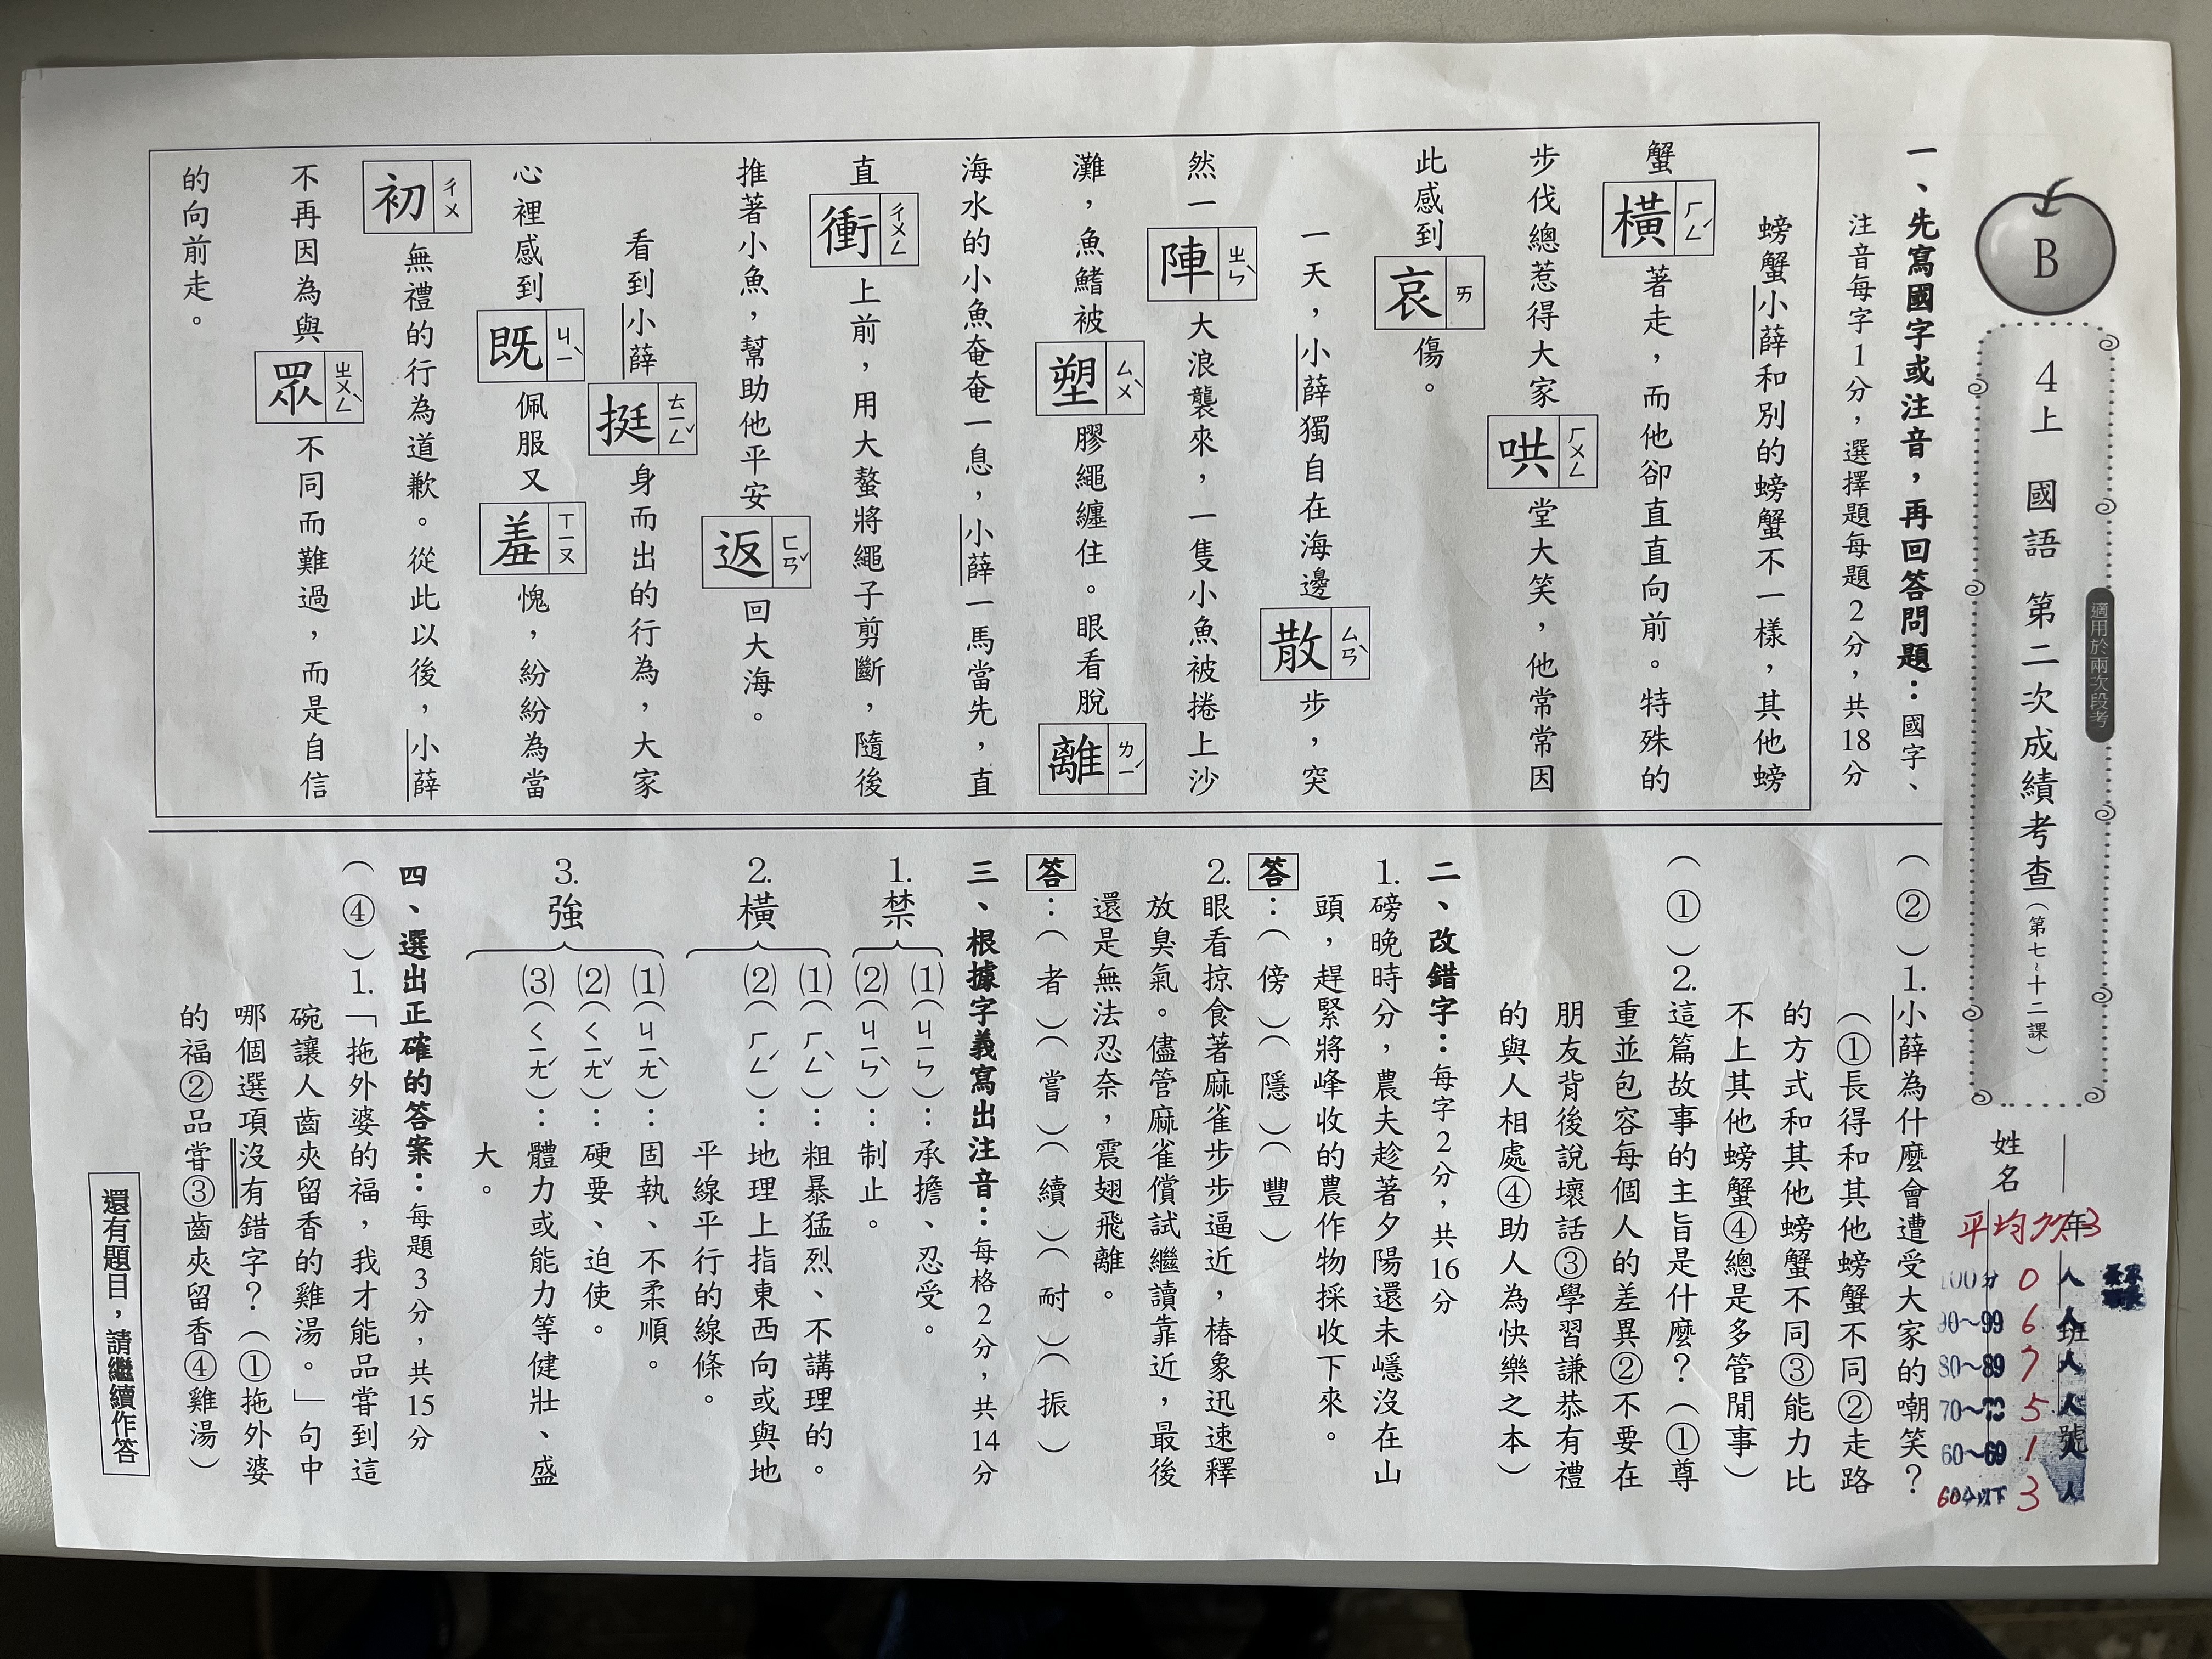 B
4上 國語 第二次成績考查(第七~十二課)
適用於兩次段考
姓名
年
班
號
平均
100分 0 人
90~99 6 人
80~89 7 人
70~79 5 人
60~69 1 人
60分以下 3 人
一、先寫國字或注音,再回答問題:國字、
注音每字1分,選擇題每題2分,共18分
螃蟹小薛和別的螃蟹不一樣,其他螃
蟹橫ㄏㄥˊ著走,而他卻直直向前。特殊的
步伐總惹得大家哄ㄏㄨㄥ堂大笑,他常常因
此感到哀ㄞ傷。
一天,小薛獨自在海邊散ㄙㄢˋ步,突
然一陣ㄓㄣˋ大浪襲來,一隻小魚被捲上沙
灘,魚鰭被塑ㄙㄨˋ膠繩纏住。眼看脫離ㄌㄧˊ
海水的小魚奄奄一息,小薛一馬當先,直
直衝ㄔㄨㄥ上前,用大螯將繩子剪斷,隨後
推著小魚,幫助他平安返ㄈㄢˇ回大海。
看到小薛挺ㄊㄧㄥˇ身而出的行為,大家
心裡感到既ㄐㄧˋ佩服又羞ㄒㄧㄡ愧,紛紛為當
初ㄔㄨ無禮的行為道歉。從此以後,小薛
不再因為與眾ㄓㄨㄥˋ不同而難過,而是自信
的向前走。
(②)1.小薛為什麼會遭受大家的嘲笑?
(①長得和其他螃蟹不同②走路
的方式和其他螃蟹不同③能力比
不上其他螃蟹④總是多管閒事)
(①)2.這篇故事的主旨是什麼?(①尊
重並包容每個人的差異②不要在
朋友背後說壞話③學習謙恭有禮
的與人相處④助人為快樂之本)
二、改錯字:每字2分,共16分
1.磅晚時分,農夫趁著夕陽還未嶾沒在山
頭,趕緊將峰收的農作物採收下來。
答:(傍)(隱)(豐)
2.眼看掠食著麻雀步步逼近,椿象迅速釋
放臭氣。儘管麻雀償試繼讀靠近,最後
還是無法忍奈,震翅飛離。
答:(者)(嘗)(續)(耐)(振)
三、根據字義寫出注音:每格2分,共14分
1.禁
(1)(ㄐㄧㄣ):承擔、忍受。
(2)(ㄐㄧㄣˋ):制止。
2.橫
(1)(ㄏㄥˋ):粗暴猛烈、不講理的。
(2)(ㄏㄥˊ):地理上指東西向或與地
平線平行的線條。
3.強
(1)(ㄐㄧㄤˋ):固執、不柔順。
(2)(ㄑㄧㄤˇ):硬要、迫使。
(3)(ㄑㄧㄤˊ):體力或能力等健壯、盛
大。
四、選出正確的答案:每題3分,共15分
(④)1.「拖外婆的福,我才能品嘗到這
碗讓人齒夾留香的雞湯。」句中
哪個選項沒有錯字?(①拖外婆
的福②品嘗③齒夾留香④雞湯)
還有題目,請繼續作答